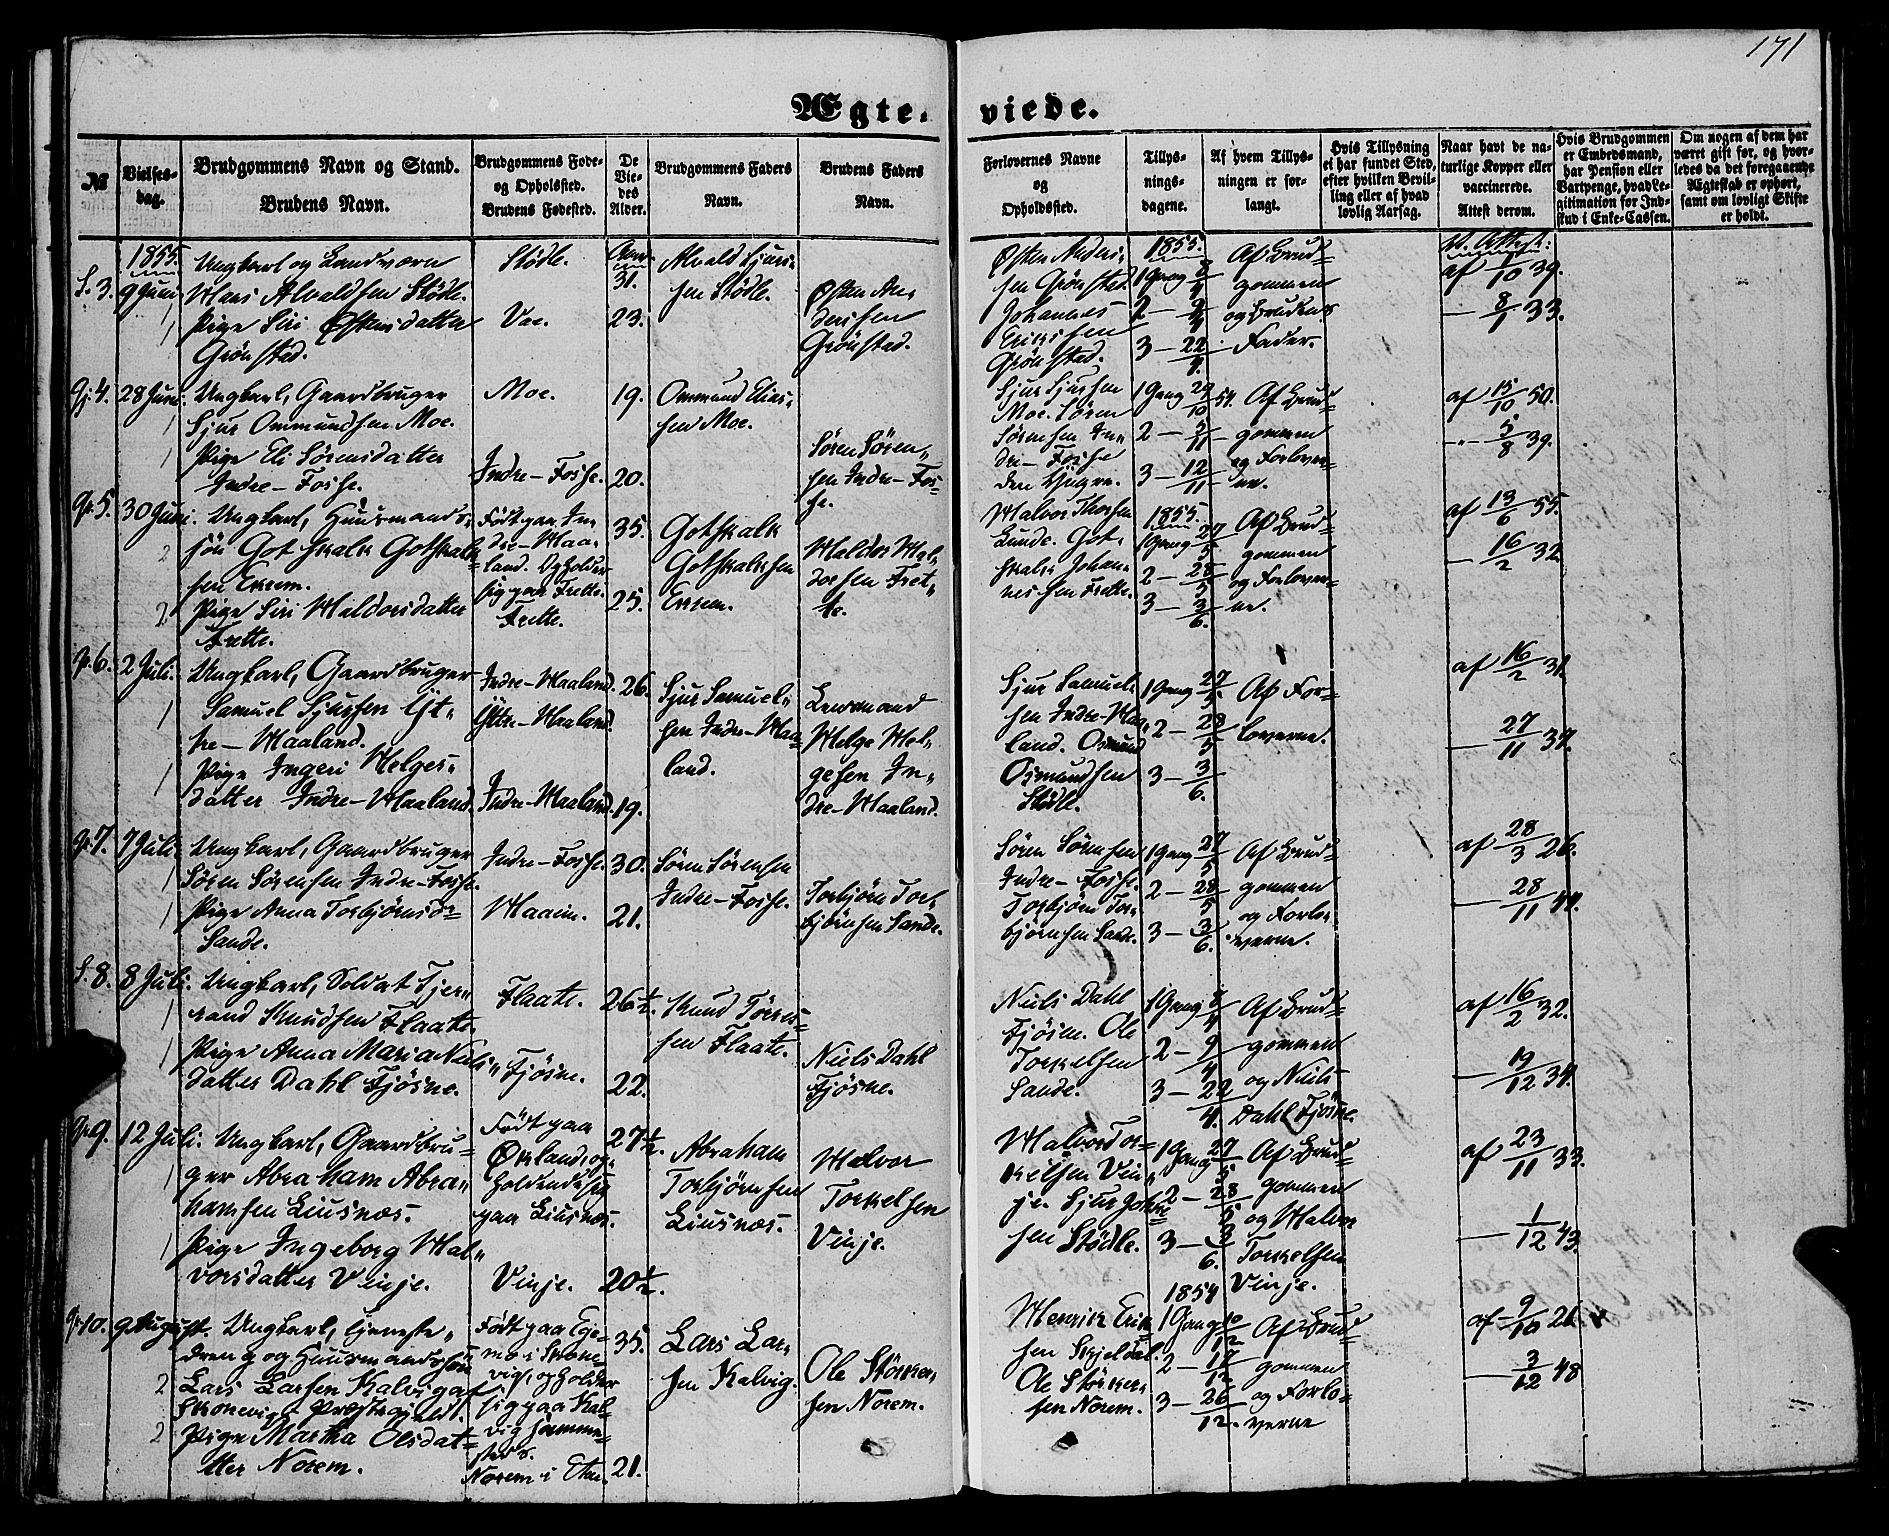 171
Ægte-viede.
№
Vielses-dag.
Brudgommens Navn og Stand.
Brudens Navn.
Brudgommens Føde- og Opholdsted.
Brudens Fødested.
De Viedes Alder.
Brudgommens Faders Navn.
Brudens Faders Navn.
Forlovernes Navne og Opholdssted.
Tillysningsdagene.
Af hvem Tillysningen er forlangt.
Hvis Tillysning ei har fundet Sted, efter hvilken Bevilling eller af hvad lovlig Aarsag.
Naar havt de naturlige Kopper eller vaccinerede. Attest derom.
Hvis Brudgommen er Embedsmand, har Pension eller Vartpenge, hvad Legitimation for Indskud i Enke-Cassen.
Om nogen af dem har været gift før, og hvorledes da det foregaaende Ægteskab er ophørt, samt om lovligt Skifte er holdt.
S. 3.
1855.
9 Juni
Ungkarl og Landværn
Hans Alvaldsen Stödle.
Pige Siri Østensdatter
Grönstad.
Stödle.
Vae.
Aar
31.
23.
Alvald Sjurs-
sen Stödle.
Østen An-
dersen
Grönstad.
Østen Anders-
sen Grönstad.
Johannes
Erichsen
Grönstad.
1855.
1 Gang 8/4
2 - 9/4
3 - 22/4.
Af Brud-
gommen
og Brudens
Fader.
Vl. Attest:
af 1/10 39.
- 8/1 33.
Gr. 4.
28 Juni.
Ungkarl, Gaardbruger
Sjur Ommundsen Moe.
Pige Eli Sörensdatter
Indre-Fosse.
Moe.
Indre-Fosse.
19.
20.
Ommund Elias-
sen Moe.
Sören Sören-
sen Indre-Fos-
se.
Sjur Sjursen
Moe. Sören
Sörensen In-
dre-Fosse
den Yngre.
1 Gang 29/10 54.
2 - 5/11
3 - 12/11
Af Brud-
gommen
og Forlover-
ne.
af 15/10 50.
- 5/8 39.
Gr. 5.
30 Juni.
Ungkarl, Huusmands-
sön Gotskalk Gotskalk-
sen Ersem.
Pige Siri Haldorsdatter
Frette.
Födt paa In-
dre-Maa-
land. Opholder
sig paa Frette.
Frette.
35.
25.
Gotskalk
Gotskalksen
Ersem.
Haldor Hal-
dorsen Fret-
te.
Halvor Thorsen
Lunde. Got-
skalk Johan-
nessen Frette.
1855.
1 Gang 27/5
2 - 28/5
3 - 3/6.
Af Brud-
gommen
og Forlover-
ne.
af 13/6 55.
- 16/2 32
Gr. 6.
2 Juli.
Ungkarl, Gaardbruger
Samuel Sjursen Yt-
tre-Maaland.
Pige Ingeri Helges-
datter Indre-Maaland.
Indre-Maaland.
Yttre-Maaland.
Indre-Maaland.
26.
19.
Sjur Samuel-
sen Indre-Maa-
land.
Lensmand
Helge Hel-
gesen In-
dre-Maaland.
Sjur Samuel-
sen Indre-Maa-
land. Osmund
Osmundsen
Stödle.
1 Gang 27/5.
2 - 28/5
3 - 3/6.
Af For-
loverne.
af 16/2 31.
- 27/11 37.
Gr. 7.
7 Juli.
Ungkarl, Gaardbruger
Sören Sörensen Indre-Fosse.
Pige Anna Torbjörnsd-
Sande.
Indre-Fosse.
Haaim.
30.
21.
Sören Sörensen
Indre-Fosse.
Torbjörn Tor-
björnsen Sande.
Sören Sörensen
Indre-Fosse.
Torbjörn Tor-
björnsen Sande.
1 Gang 27/5
2 - 28/5
3 - 3/6.
Af Brud-
gommen
og Forlo-
verne.
af 28/3 26.
- 28/11 44.
S. 8.
8 Juli.
Ungkarl, Soldat Tjer-
rand Knudsen Flaate.
Pige Anna Maria Niels-
datter Dahl Fjösne.
Flaate.
Fjösne.
26½.
22.
Knud Törres-
sen Flaate.
Niels Dahl
Fjösne.
Niels Dahl
Fjösne. Ole
Torkelsen
Sande.
1 Gang 8/4
2 - 9/4
3 - 22/4.
Af Brud-
gommen
og Niels
Dahl Fjösne.
af 16/2 32.
- 19/12 34.
Gr. 9.
12 Juli.
Ungkarl, Gaardbru-
ger Abraham Abra-
hamsen Liusnæs.
Pige Ingeborg Hal-
vorsdatter Vinje.
Födt paa
Økland, op-
holdende sig
paa Liusnæs.
Vinje.
27½.
20½.
Abraham
Torbjörnsen
Liusnæs.
Halvor
Torkelsen
Vinje.
Halvor Tor-
kelsen Vin-
je. Sjur John-
sen Stödle.
1 Gang 27/5
2 - 28/5
3 - 3/6.
Af Brud-
gommen
og Halvor
Torkelsen
Vinje.
af 23/11 33.
- 1/12 43.
Gr. 10.
9 August.
Ungkarl, tjeneste-
dreng og Huusmandssön
Lars Larsen Kalvig af
Skonevigs Præstegjeld.
Pige Martha Olsdat-
ter Norem.
Födt paa Ege-
mo i Skone-
vig, opholder
sig paa Kal-
vig samme-
steds.
Norem i Etne.
35.
21.
Lars Lar-
sen Kalvig.
Ole Störker-
sen Norem.
Henrich Erik-
sen Skjeldal.
Ole Störker-
sen Norem.
1854
1 Gang 10/12
2 - 17/12
3 - 26/12.
Af Brud-
gommen
og Forlo-
verne
af 9/10 21
- 3/12 48